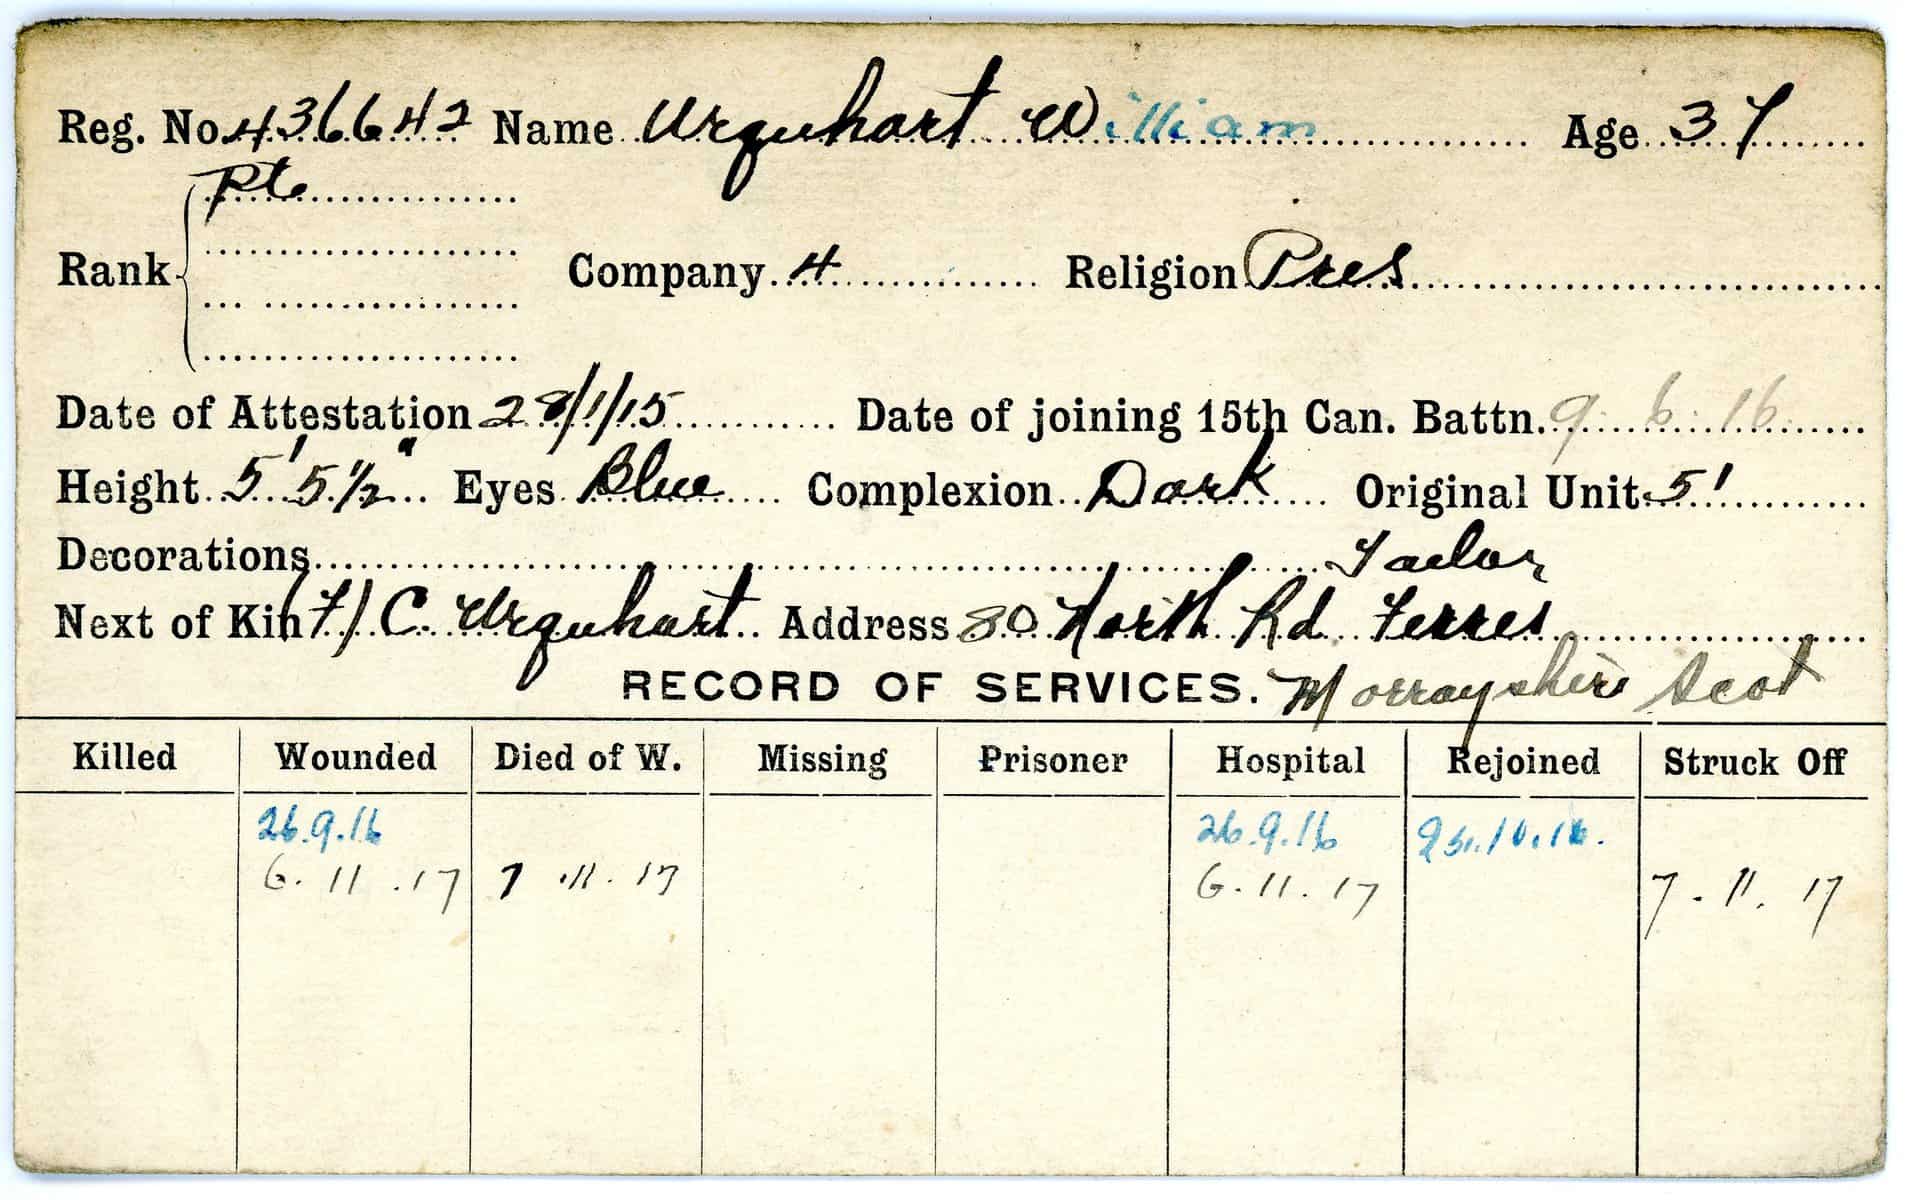 Reg. No. 436642 Name Urquhart William Age 37
Pte
Rank Company 4 Religion Pres
Date of Attestation 28/1/15 Date of joining 15th Can. Battn. 9.6.16
Height 5' 5 1/2" Eyes Blue Complexion Dark Original Unit 51
Decorations Tailor
Next of Kin F/ C. Urquhart Address 80 North Rd Ferres
RECORD OF SERVICES. Morrayshire Scot
Killed Wounded Died of W. Missing Prisoner Hospital Rejoined Struck Off
26.9.16 26.9.16
6.11.17 7.11.17 6.11.17 7.11.17